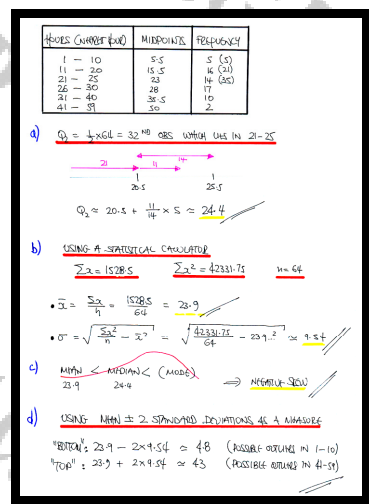 HOURS (NEAREST HOUR) MIDPOINTS FREQUENCY
1 - 10 5.5 5 (5)
11 - 20 15.5 16 (21)
21 - 25 23 14 (35)
26 - 30 28 17
31 - 40 35.5 10
41 - 59 50 2
a) Q₂ = ½×64 = 32ND OBS WHICH LIES IN 21-25
14
21 11
20.5 25.5
Q₂ ≈ 20.5 + 11/14 × 5 ≈ 24.4
b) USING A STATISTICAL CALCULATOR
Σx = 1528.5 Σx² = 42331.75 n = 64
• x̄ = Σx/n = 1528.5/64 = 23.9
• σ = √(Σx²/n − x̄²) = √(42331.75/64 − 23.9..²) ≈ 9.54
c) MEAN < MEDIAN < (MODE)
23.9 24.4 ⇒ NEGATIVE SKEW
d) USING MEAN ± 2 STANDARD DEVIATIONS AS A MEASURE
"BOTTOM": 23.9 − 2×9.54 ≈ 4.8 (POSSIBLE OUTLIERS IN 1-10)
"TOP": 23.9 + 2×9.54 ≈ 43 (POSSIBLE OUTLIERS IN 41-59)